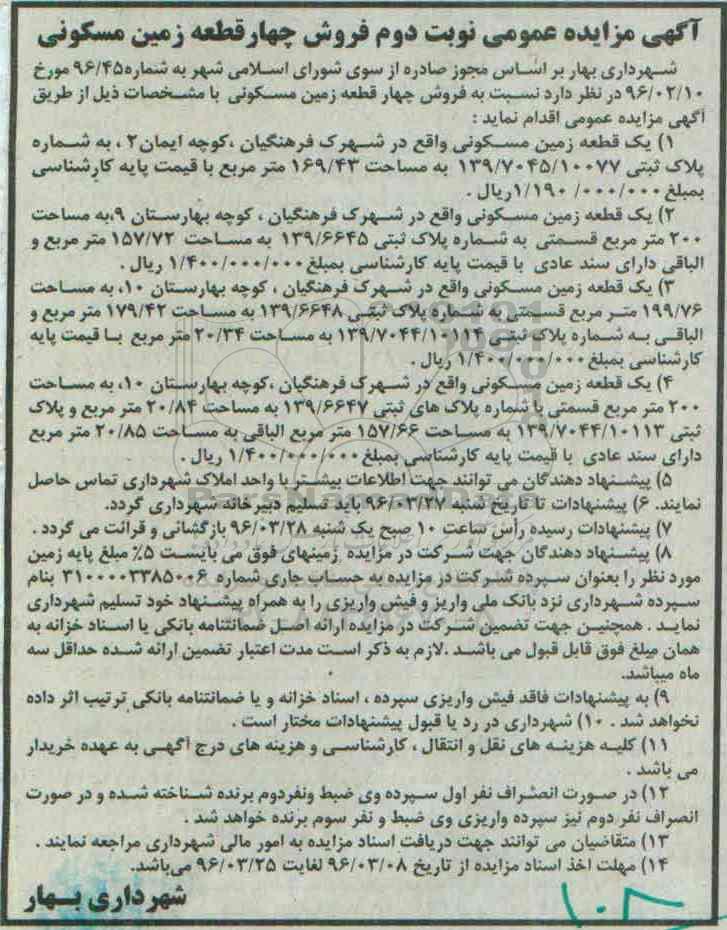 آگهی مزایده عمومی نوبت دوم فروش چهارقطعه زمین مسکونی
شهرداری بهار بر اساس مجوز صادره از سوی شورای اسلامی شهر به شماره ۹۶/۴۵ مورخ
۹۶/۰۲/۱۰ در نظر دارد نسبت به فروش چهار قطعه زمین مسکونی با مشخصات ذیل از طریق
آگهی مزایده عمومی اقدام نماید :
۱) یک قطعه زمین مسکونی واقع در شهرک فرهنگیان ،کوچه ایمان۲ ، به شماره
پلاک ثبتی ۱۳۹/۷۰۴۵/۱۰۰۷۷ به مساحت ۱۶۹/۴۳ متر مربع با قیمت پایه کارشناسی
بمبلغ ۱/۱۹۰/۰۰۰/۰۰۰ ریال .
۲) یک قطعه زمین مسکونی واقع در شهرک فرهنگیان ، کوچه بهارستان ۹،به مساحت
۲۰۰ متر مربع قسمتی به شماره پلاک ثبتی ۱۳۹/۶۶۴۵ به مساحت ۱۵۷/۷۲ متر مربع و
الباقی دارای سند عادی با قیمت پایه کارشناسی بمبلغ ۱/۴۰۰/۰۰۰/۰۰۰ ریال .
۳) یک قطعه زمین مسکونی واقع در شهرک فرهنگیان ، کوچه بهارستان ۱۰، به مساحت
۱۹۹/۷۶ متر مربع قسمتی به شماره پلاک ثبتی ۱۳۹/۶۶۴۸ به مساحت ۱۷۹/۴۲ متر مربع و
الباقی به شماره پلاک ثبتی ۱۳۹/۷۰۴۴/۱۰۱۱۴ به مساحت ۲۰/۳۴ متر مربع با قیمت پایه
کارشناسی بمبلغ ۱/۴۰۰/۰۰۰/۰۰۰ ریال .
۴) یک قطعه زمین مسکونی واقع در شهرک فرهنگیان ،کوچه بهارستان ۱۰، به مساحت
۲۰۰ متر مربع قسمتی با شماره پلاک های ثبتی ۱۳۹/۶۶۴۷ به مساحت ۲۰/۸۴ متر مربع و پلاک
ثبتی ۱۳۹/۷۰۴۴/۱۰۱۱۳ به مساحت ۱۵۷/۶۶ متر مربع الباقی به مساحت ۲۰/۸۵ متر مربع
دارای سند عادی با قیمت پایه کارشناسی بمبلغ ۱/۴۰۰/۰۰۰/۰۰۰ ریال .
۵) پیشنهاد دهندگان می توانند جهت اطلاعات بیشتر با واحد املاک شهرداری تماس حاصل
نمایند. ۶) پیشنهادات تا تاریخ شنبه ۹۶/۰۳/۲۷ باید تسلیم دبیرخانه شهرداری گردد.
۷) پیشنهادات رسیده رأس ساعت ۱۰ صبح یک شنبه ۹۶/۰۳/۲۸ بازگشائی و قرائت می گردد .
۸) پیشنهاد دهندگان جهت شرکت در مزایده زمینهای فوق می بایست ۵% مبلغ پایه زمین
مورد نظر را بعنوان سپرده شرکت در مزایده به حساب جاری شماره ۳۱۰۰۰۰۳۳۸۵۰۰۶ بنام
سپرده شهرداری نزد بانک ملی واریز و فیش واریزی را به همراه پیشنهاد خود تسلیم شهرداری
نماید . همچنین جهت تضمین شرکت در مزایده ارائه اصل ضمانتنامه بانکی یا اسناد خزانه به
همان مبلغ فوق قابل قبول می باشد .لازم به ذکر است مدت اعتبار تضمین ارائه شده حداقل سه
ماه میباشد.
۹) به پیشنهادات فاقد فیش واریزی سپرده ، اسناد خزانه و یا ضمانتنامه بانکی ترتیب اثر داده
نخواهد شد . ۱۰) شهرداری در رد یا قبول پیشنهادات مختار است .
۱۱) کلیه هزینه های نقل و انتقال ، کارشناسی و هزینه های درج آگهی به عهده خریدار
می باشد .
۱۲) در صورت انصراف نفر اول سپرده وی ضبط ونفردوم برنده شناخته شده و در صورت
انصراف نفر دوم نیز سپرده واریزی وی ضبط و نفر سوم برنده خواهد شد .
۱۳) متقاضیان می توانند جهت دریافت اسناد مزایده به امور مالی شهرداری مراجعه نمایند .
۱۴) مهلت اخذ اسناد مزایده از تاریخ ۹۶/۰۳/۰۸ لغایت ۹۶/۰۳/۲۵ می‌باشد.
شهرداری بهار
ParsNamadData